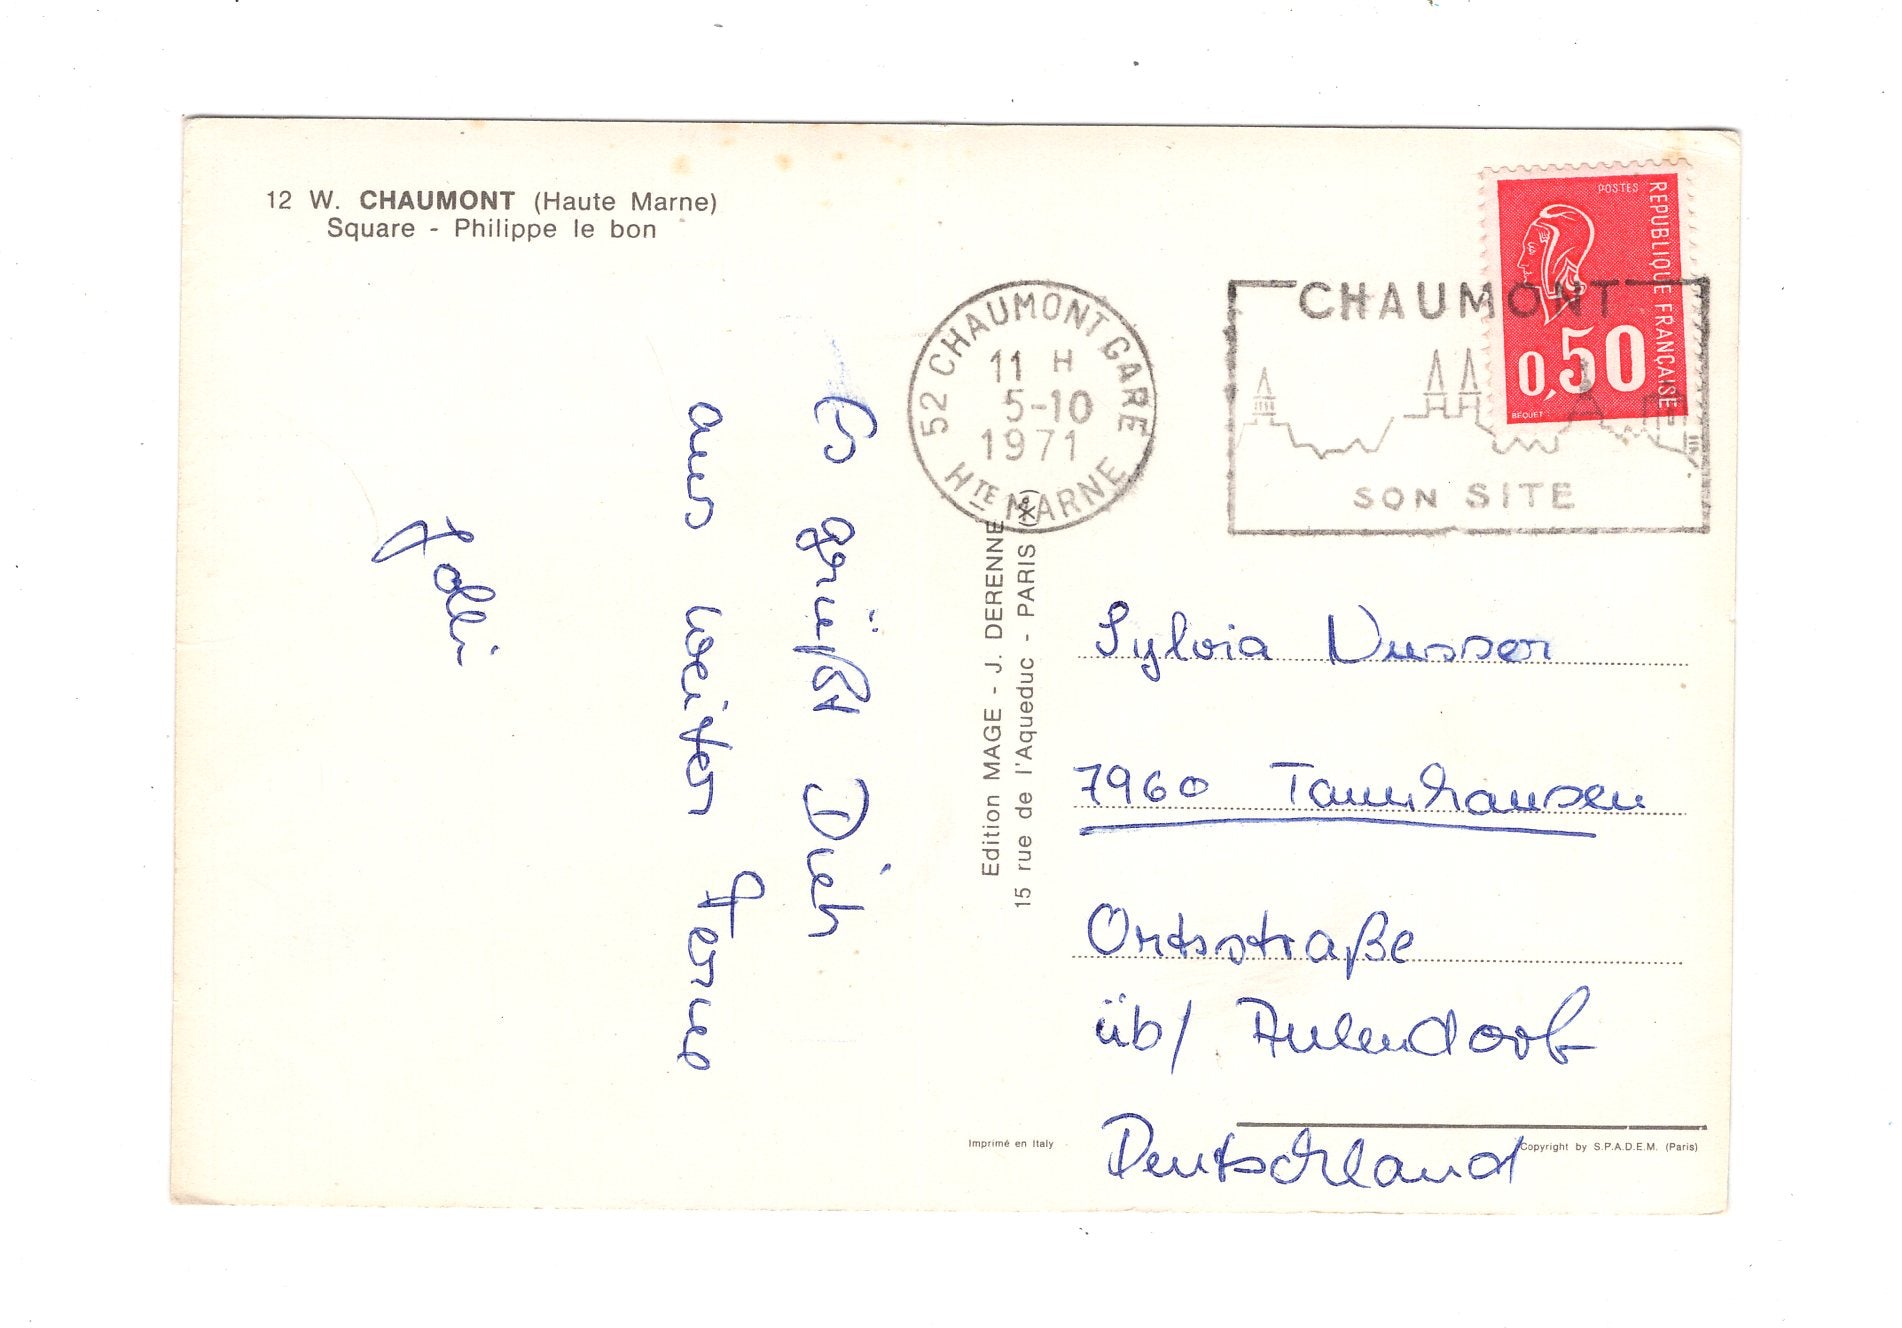 12 W. CHAUMONT (Haute Marne)
Square - Philippe le bon
Es grüßt Dich
aus weiter Ferne
Edition MAGE - J. DERENNE
15 rue de l'Aqueduc - PARIS
52 CHAUMONT GARE
11 H
5-10
1971
HTE MARNE
CHAUMONT
SON SITE
POSTES
REPUBLIQUE FRANÇAISE
0,50
BEQUET
Sylvia Nusser
7960 Tannhausen
Ortsstraße
üb/ Aulendorf
Deutschland
Imprimé en Italy
Copyright by S.P.A.D.E.M. (Paris)